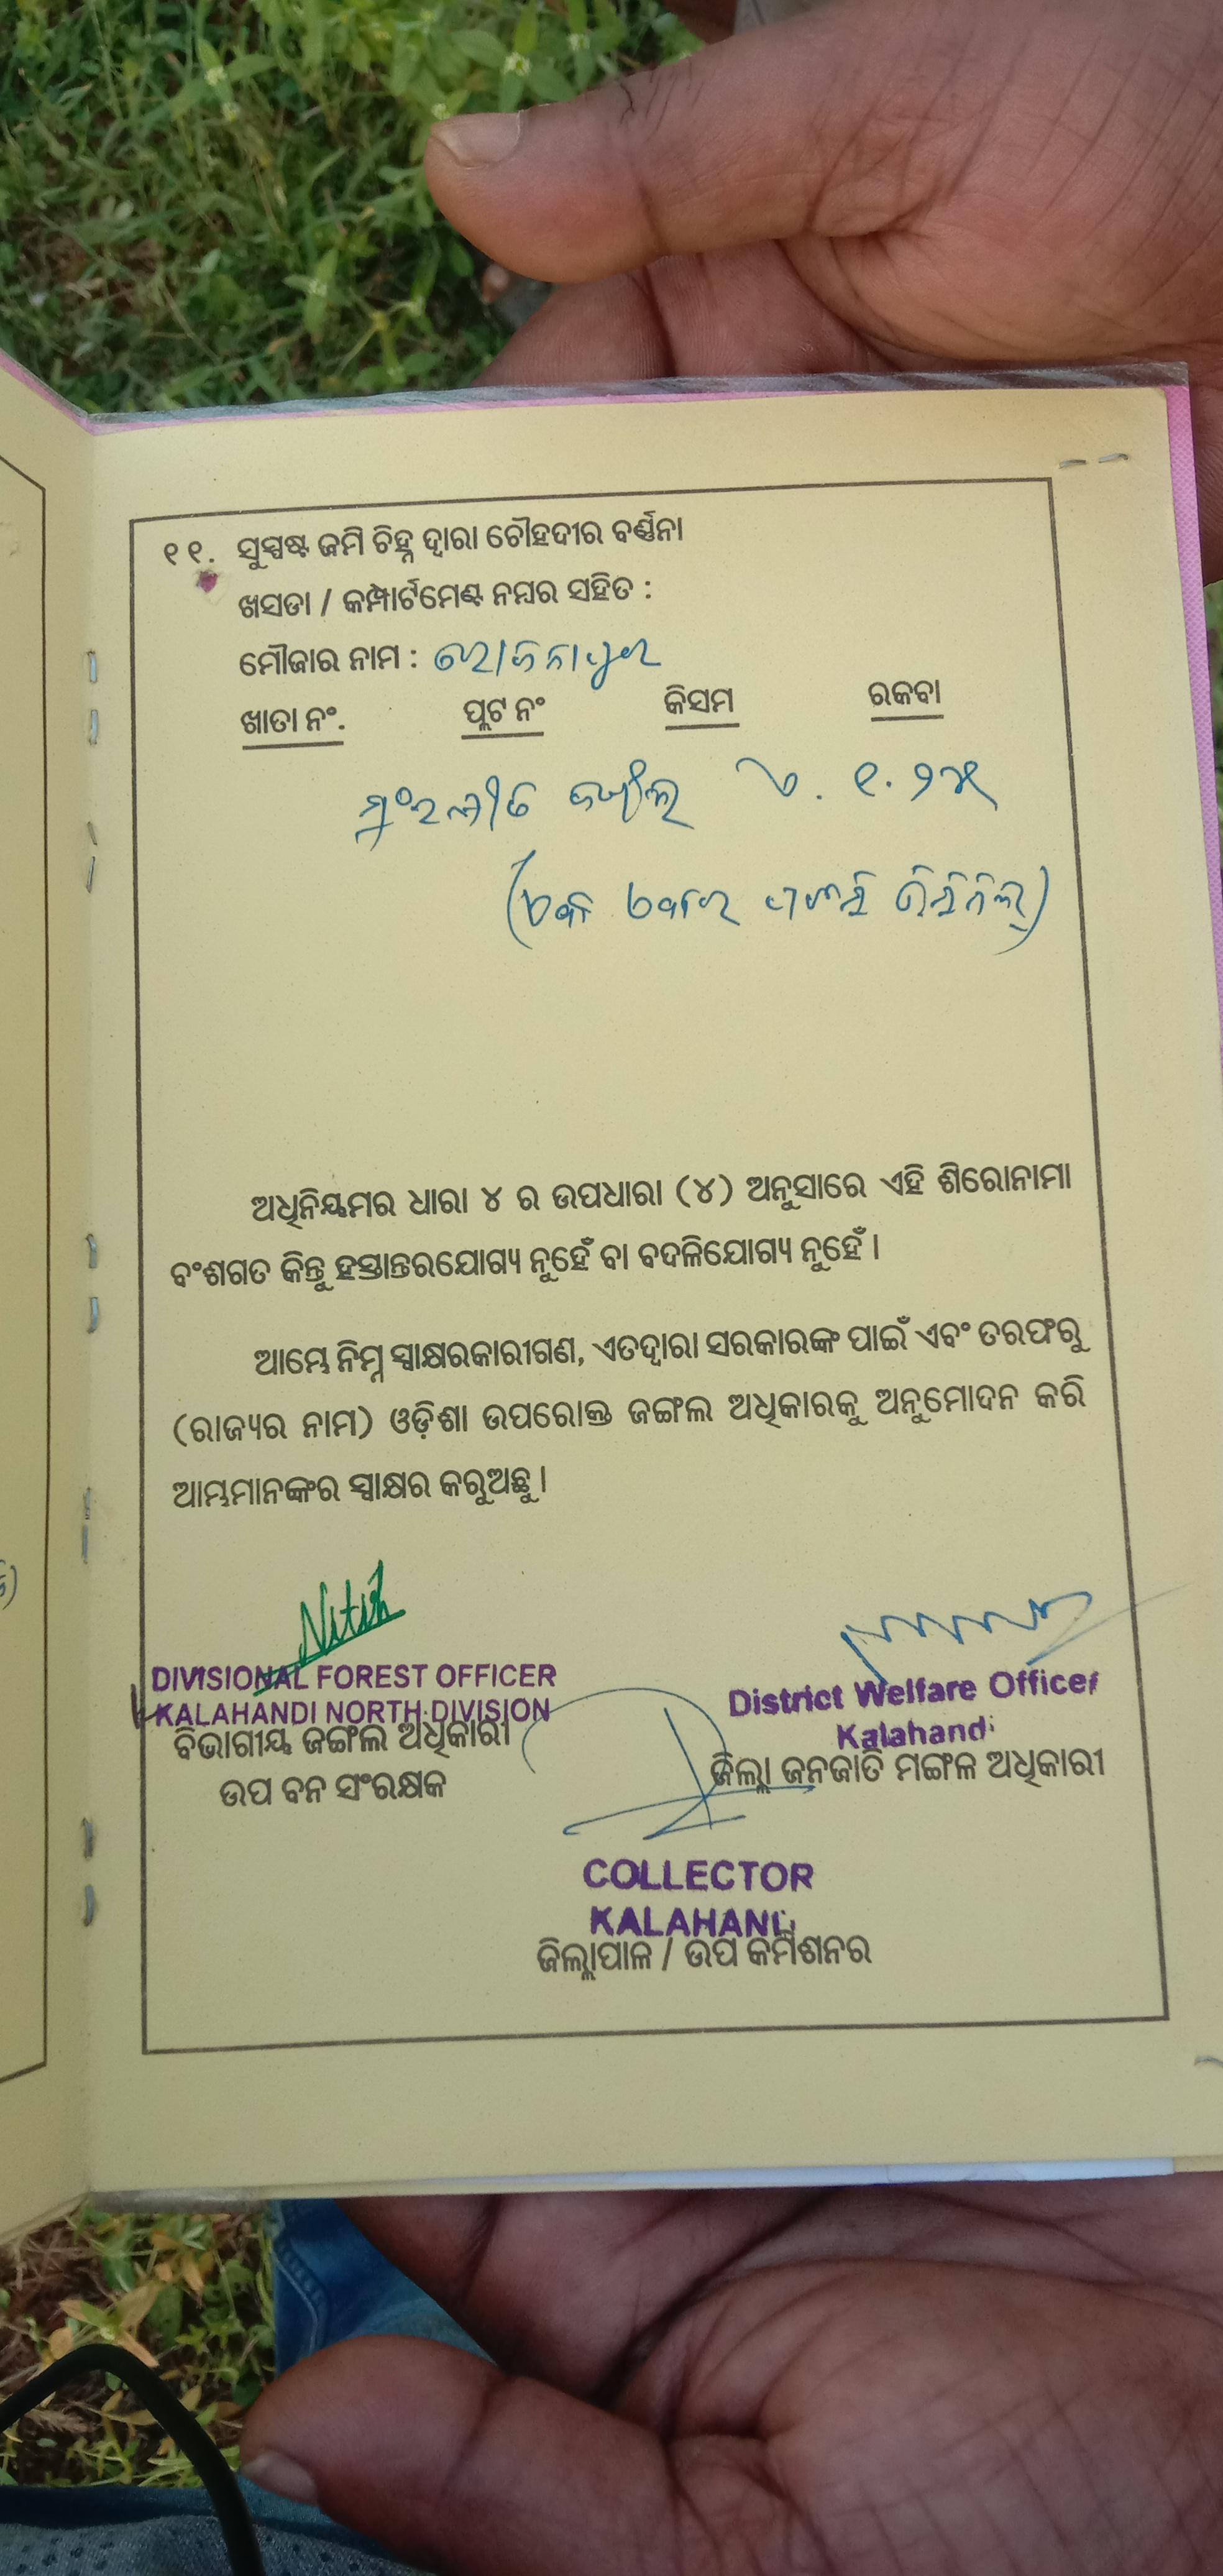 ୧୧. ସୁସ୍ପଷ୍ଟ ଜମି ଚିହ୍ନ ଦ୍ଵାରା ଚୌହଦୀର ବର୍ଣ୍ଣନା
ଖସଡା / କମ୍ପାର୍ଟମେଣ୍ଟ ନମ୍ବର ସହିତ :
ମୌଜାର ନାମ :
ଖାତା ନଂ. ପ୍ଲଟ ନଂ କିସମ ରକବା
ଜଙ୍ଗଲ ଏ. ୧.୨୫
ଅଧିନିୟମର ଧାରା ୪ ର ଉପଧାରା (୪) ଅନୁସାରେ ଏହି ଶିରୋନାମା
ବଂଶଗତ କିନ୍ତୁ ହସ୍ତାନ୍ତରଯୋଗ୍ୟ ନୁହେଁ ବା ବଦଳିଯୋଗ୍ୟ ନୁହେଁ ।
ଆମ୍ଭେ ନିମ୍ନ ସ୍ଵାକ୍ଷରକାରୀଗଣ, ଏତଦ୍ଵାରା ସରକାରଙ୍କ ପାଇଁ ଏବଂ ତରଫରୁ
(ରାଜ୍ୟର ନାମ) ଓଡ଼ିଶା ଉପରୋକ୍ତ ଜଙ୍ଗଲ ଅଧିକାରକୁ ଅନୁମୋଦନ କରି
ଆମ୍ଭମାନଙ୍କର ସ୍ଵାକ୍ଷର କରୁଅଛୁ ।
Nitish
DIVISIONAL FOREST OFFICER
KALAHANDI NORTH DIVISION
ବିଭାଗୀୟ ଜଙ୍ଗଲ ଅଧିକାରୀ
ଉପ ବନ ସଂରକ୍ଷକ
District Welfare Officer
Kalahandi
ଜିଲ୍ଲା ଜନଜାତି ମଙ୍ଗଳ ଅଧିକାରୀ
COLLECTOR
KALAHANDI
ଜିଲ୍ଲାପାଳ / ଉପ କମିଶନର